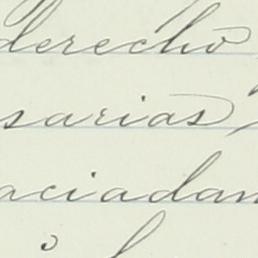 derecho
sarias
aciadam